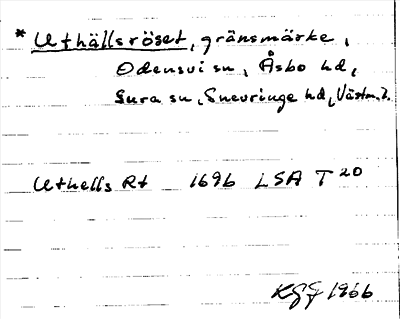 * Uthällsröset, gränsmärke,
Odensvi sn, Åsbo hd,
Sura sn, Snevringe hd, Västm. l.
Uthells Rt 1696 LSA T 20
1966